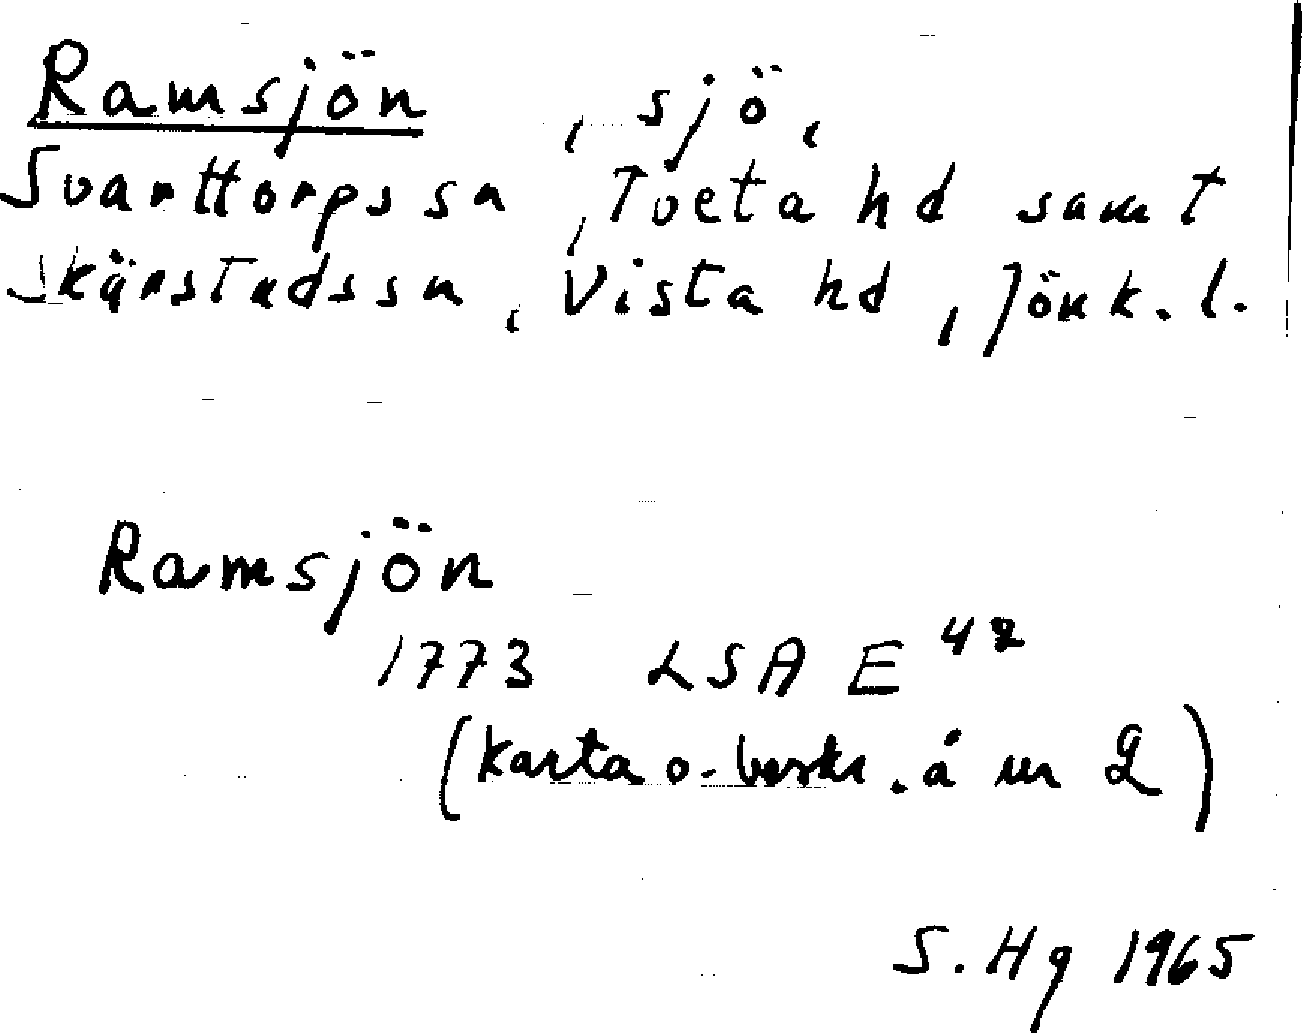 Ramsjön, sjö,
Svarttorps sn, Tveta hd samt
Skärstads sn, Vista hd, Jönk. l.
Ramsjön
1773 LSA E 47
(karta o. beskr. å nr 2)
S. Hg 1965